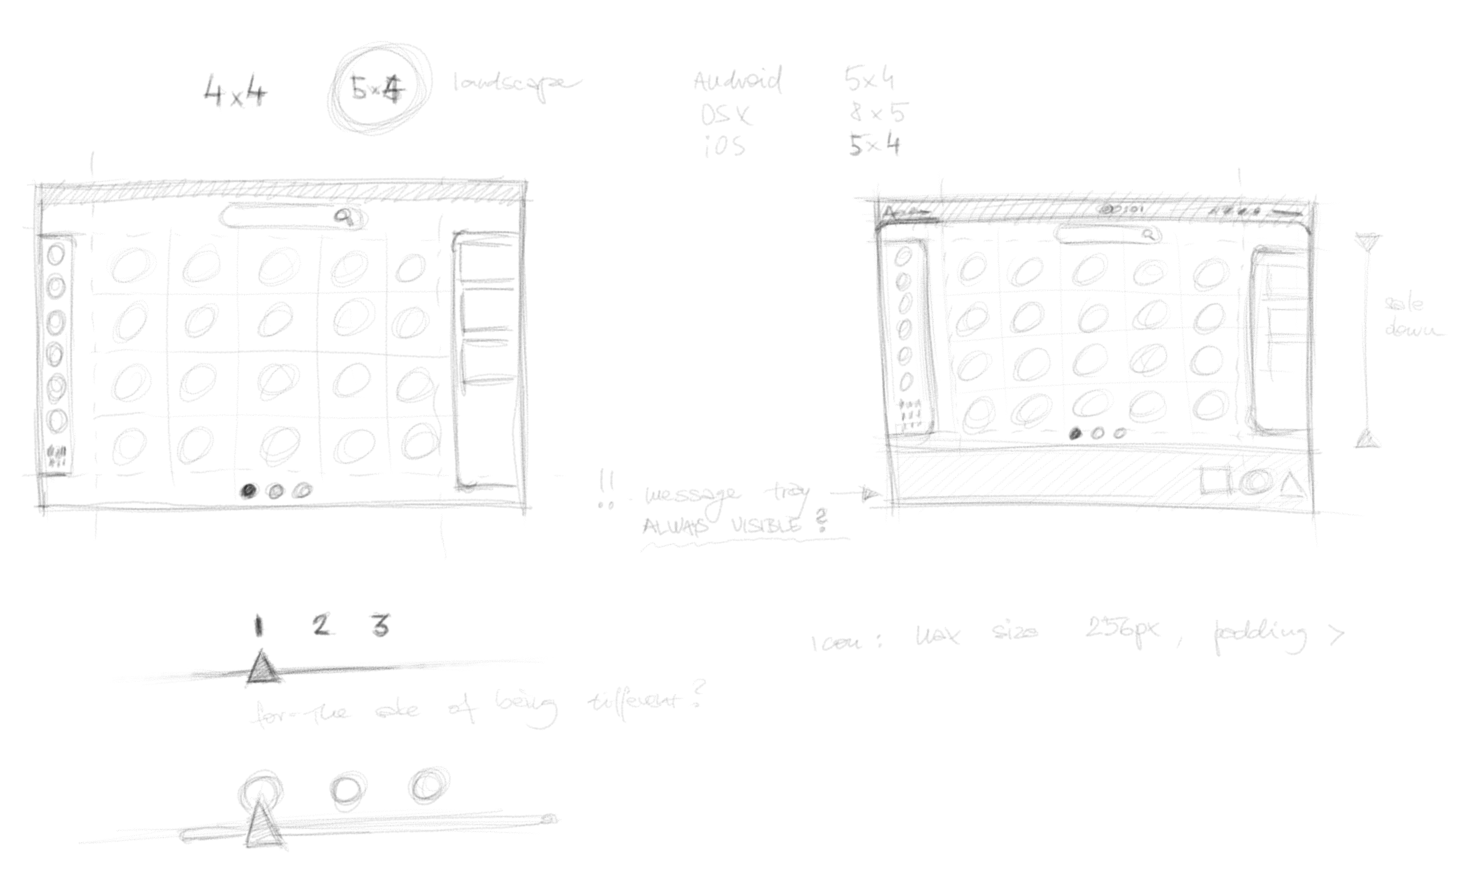 4x4 5x4 landscape
Android 5x4
OSX 8x5
iOS 5x4
scale
down
!! message tray
ALWAYS VISIBLE?
1 2 3
for the sake of being different?
icon: max size 256px, padding >